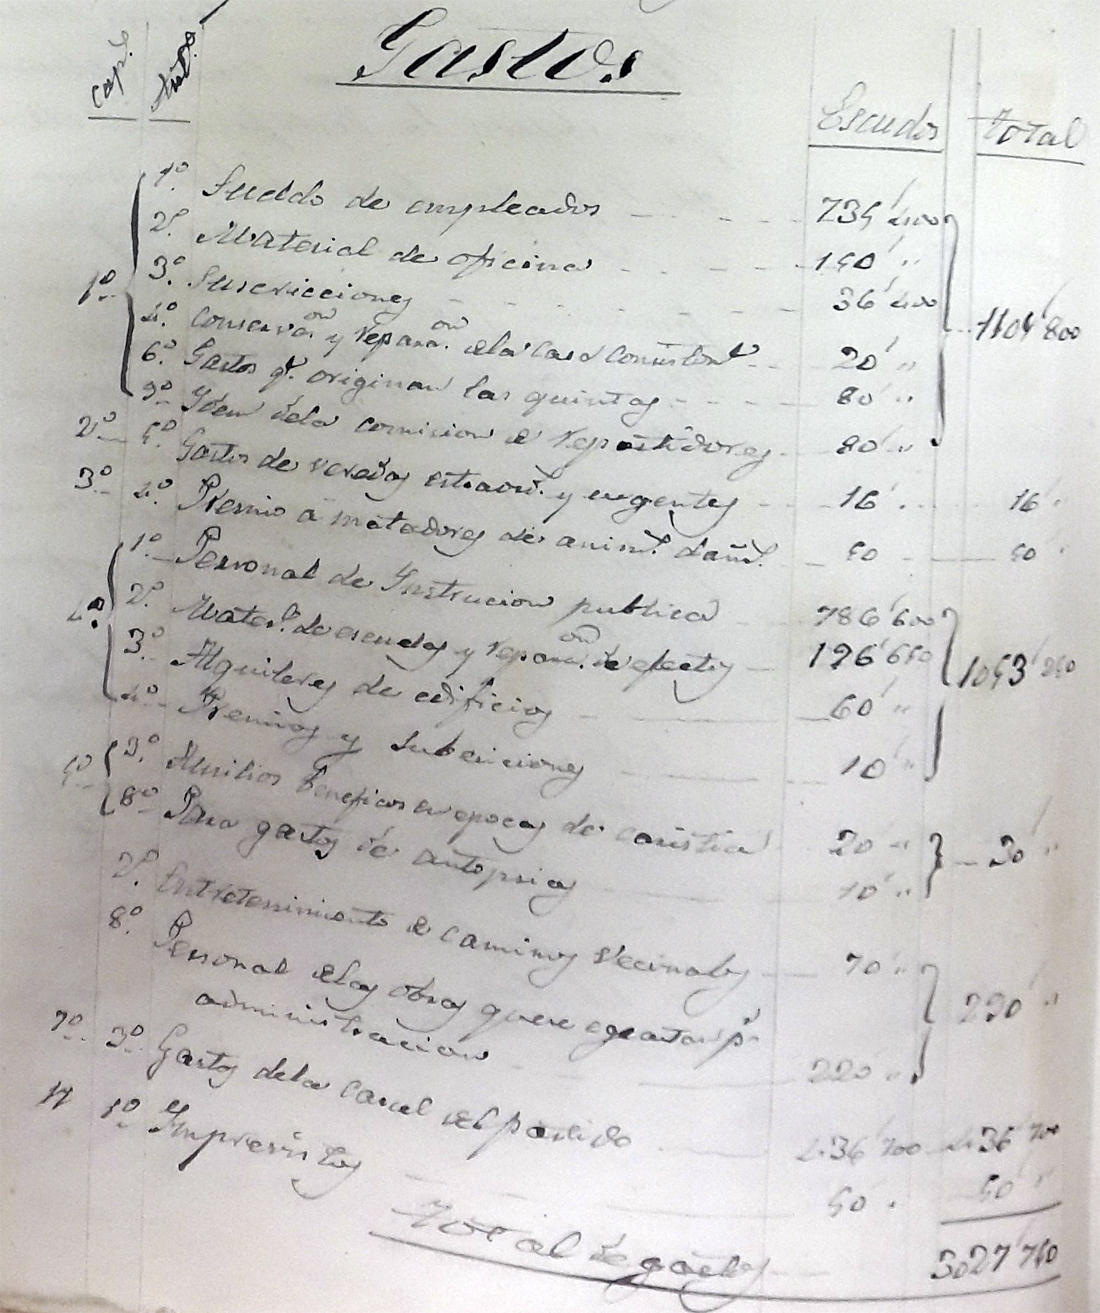 Gastos
Cap.s Art.os Escudos Total
1º Sueldo de empleados 734'400
2º Material de oficina 150'"
3º Suscricciones 36'400
1º 1104'800
4º Conservaon y reparaon dela Casa Consistorl 20'"
6º Gastos qe originan las quintas 80'"
9º Idem dela comision de repartidores 80'"
2º 5º Gastos de veredas estraord. y urgentes 16' 16'
3º 4º Premio á matadores de animl dañl 50 50'
1º Personal de Instrucion publica 786'600
2º Materl de escuelas y reparaon de efectos 196'650
4º 1053'250
3º Alquileres de edificios 60'"
4º Premios y subenciones 10'"
5º 3º Ausilios beneficos en epocas de caristia 20" 30'"
8º Para gastos de autopsias 10'"
2º Entretenimiento de caminos vecinales 70'"
8º Personal delas obras que se egecutan pr
administracion 220" 290'"
7º 3º Gastos dela Carcel del partido 436'700 436'700
11 1º Imprevistos 50' 50'"
Total de gastos 3027'750